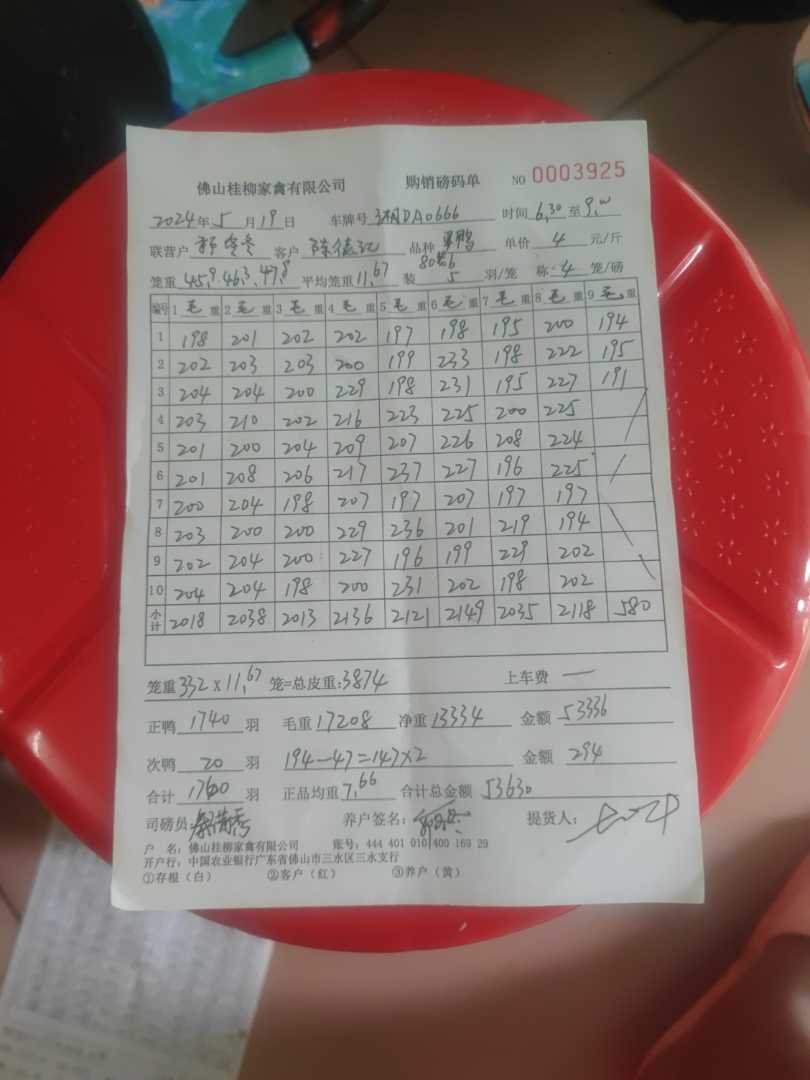 佛山桂柳家禽有限公司 购销磅码单 NO 0003925
2024年5月19日 车牌号 DA0666 时间6.30至9.00
联营户 客户 陈德记 品种 鸭 单价 4 元/斤
80装6
笼重45.9.46.3.47.8平均笼重11.67装 5 羽/笼 称 4 笼/磅
编号 1毛重 2毛重 3毛重 4毛重 5毛重 6毛重 7毛重 8毛重 9毛重
1 198 201 202 202 197 198 195 200 194
2 202 203 203 200 199 233 198 222 195
3 204 204 200 229 198 231 195 227 191
4 203 210 202 216 223 225 200 225
5 201 200 204 209 207 226 208 224
6 201 208 206 217 237 227 196 225
7 200 204 198 207 197 207 197 197
8 203 200 200 229 236 201 219 194
9 202 204 200 227 196 199 229 202
10 204 204 198 200 231 202 198 202
小计 2018 2038 2013 2136 2121 2149 2035 2118 580
笼重332×11.67笼=总皮重:3874 上车费 一
正鸭 1740 羽 毛重17208 净重13334 金额53336
次鸭 20 羽 194-47=147×2 金额 294
合计 1760 羽 正品均重7.66 合计总金额 53630
司磅员 养户签名: 提货人:
户 名:佛山桂柳家禽有限公司 账号:444 401 010 400 169 29
开户行:中国农业银行广东省佛山市三水区三水支行
①存根(白) ②客户(红) ③养户(黄)